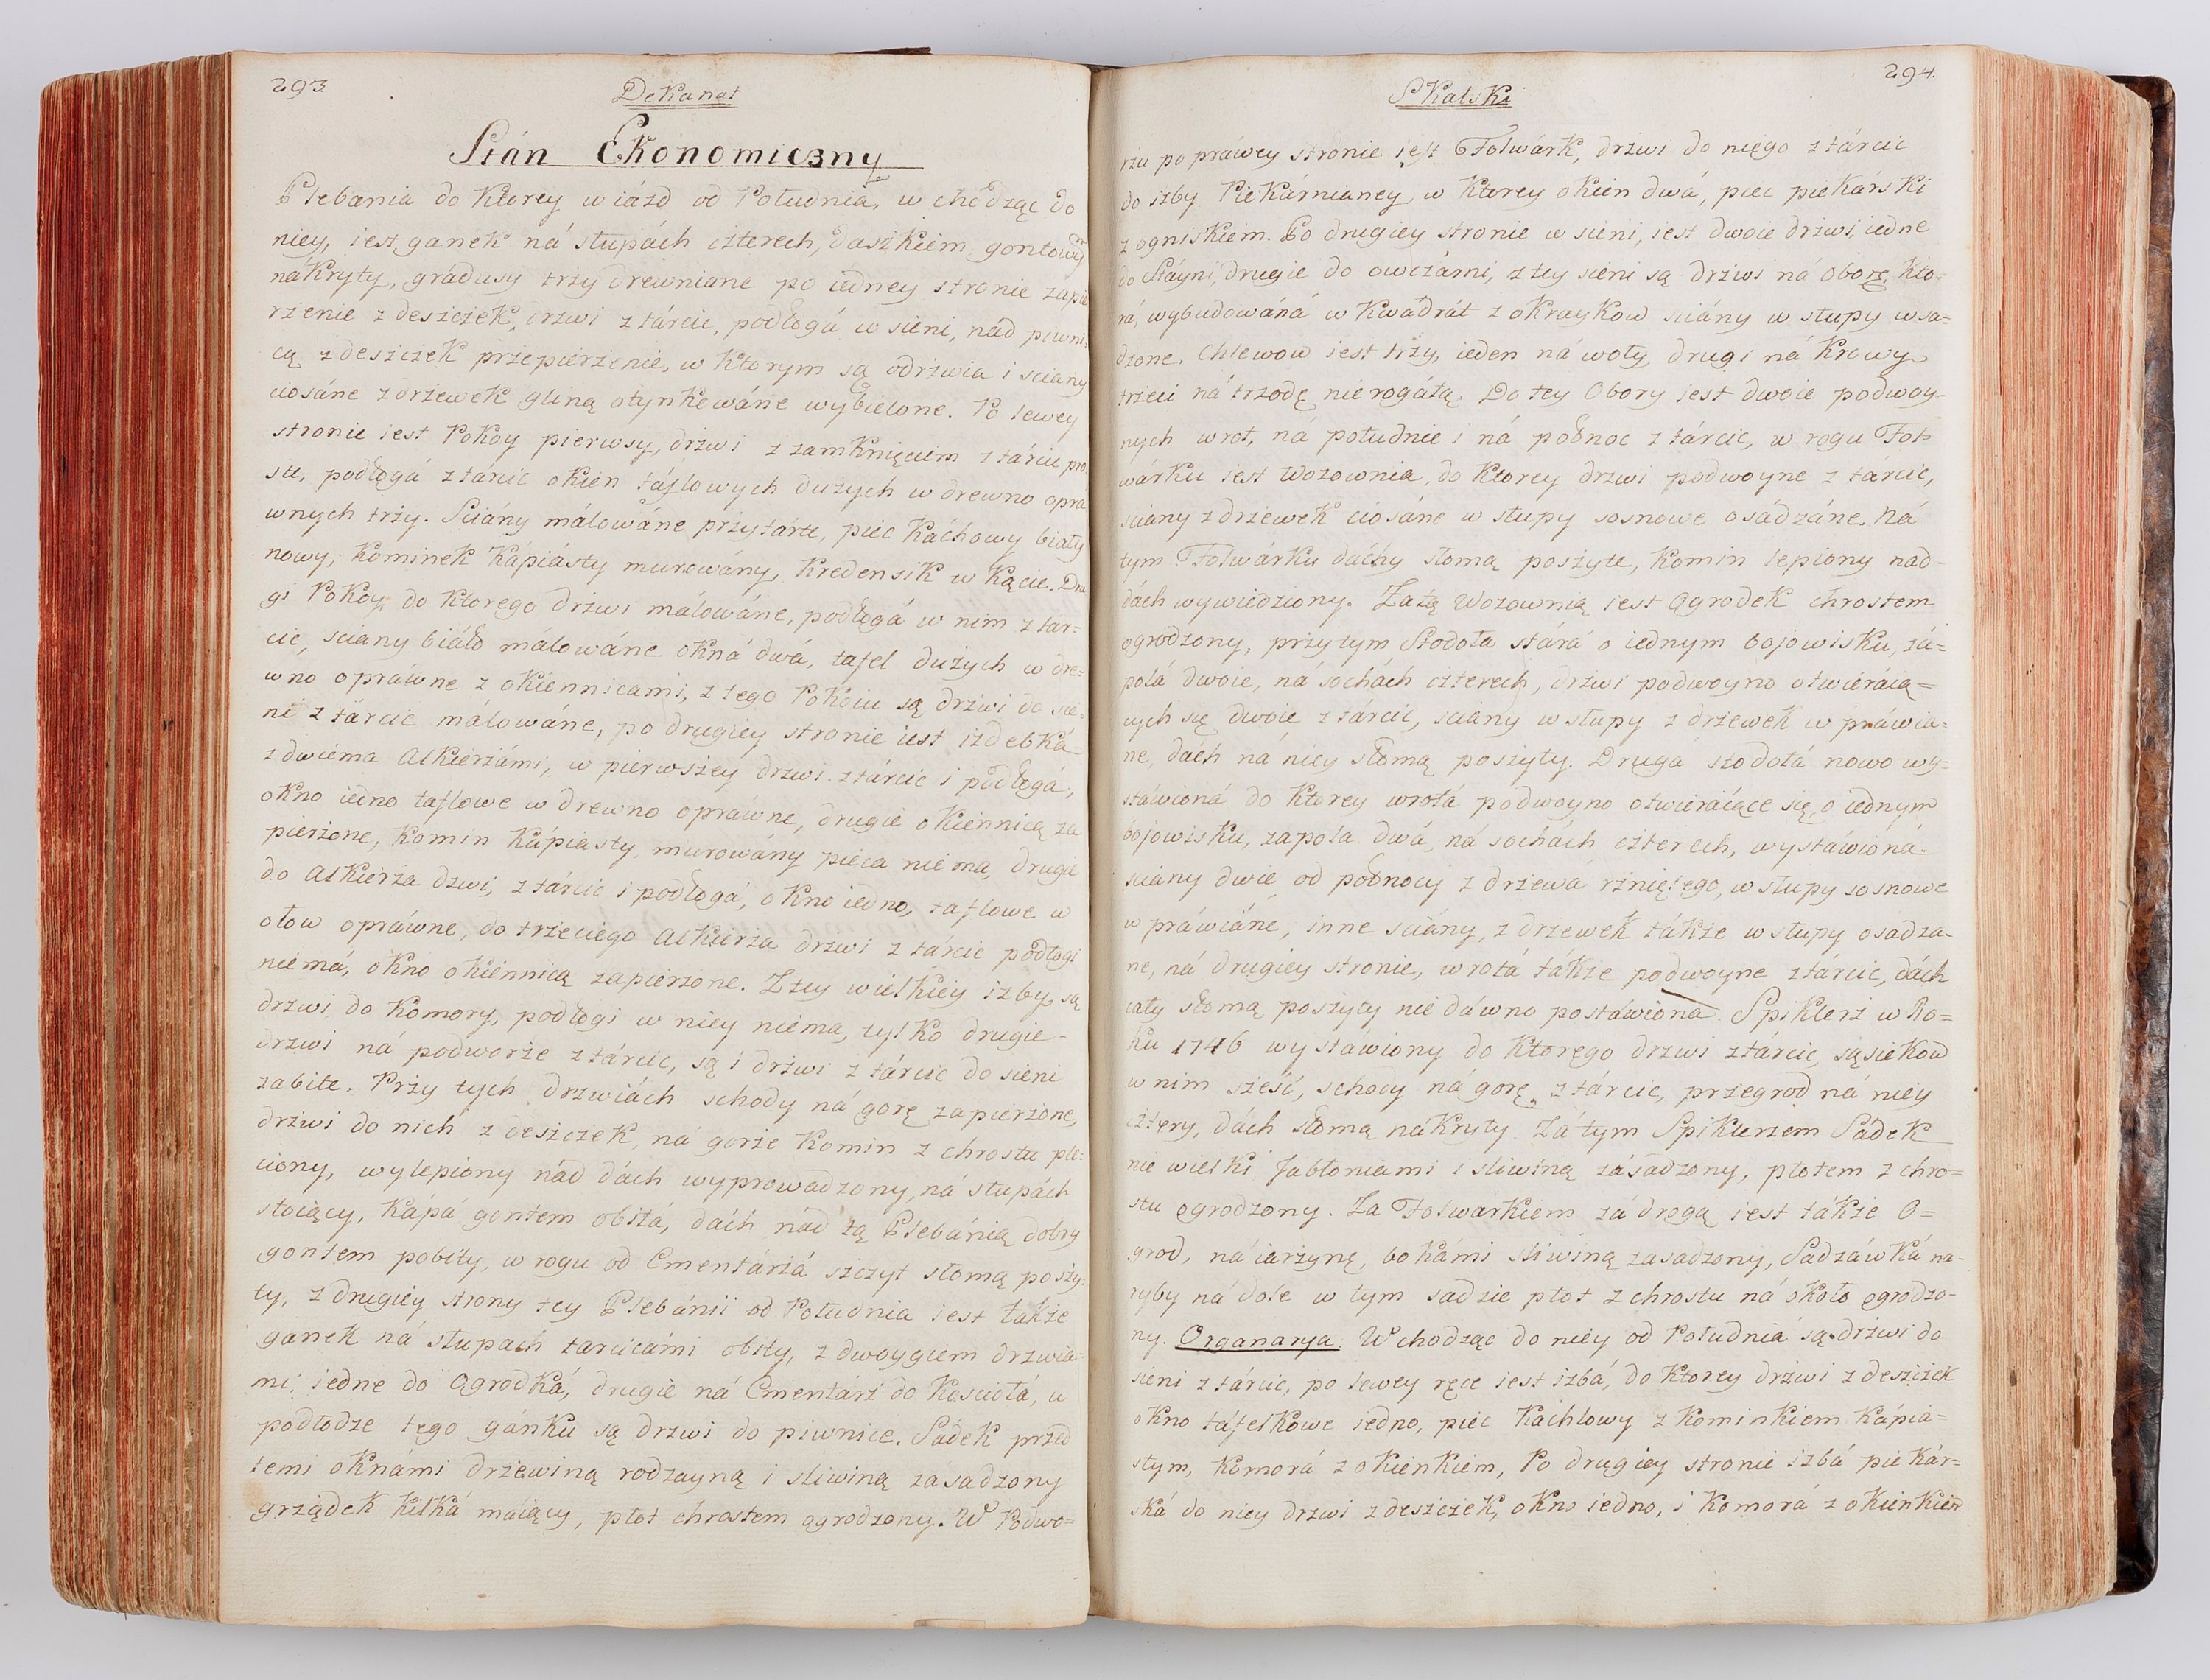 293
Dekanat
Stán Ekonomiczny
Plebania do Ktorey wiázd od Południa, w chodząc do
niey, iest ganek ná słupách czterech, daszkiem gontowy
nákryty, grádusy trzy drewniane po iedney stronie zapie
rzenie z deszczek, drzwi z tárcic, podłogá w sieni, nád piwni,
cą z deszczek przepierzenie, w ktorym są odrzwia i sciány
ciosáne z drzewek gliną otynkowáne wybielone. Po lewey
stronie iest Pokoy pierwsy, drzwi z zamknięciem z tárcic pro
ste, podłogá z tarcic okien táflowych dużych w drewno opra
wnych trzy. Sciány málowáne przytárte, piec Káchowy biały
nowy, Kominek Kápiásty murowány, Kredensik w Kącie. Dru
gi Pokoy do Ktorego drzwi málowáne, podłogá w nim z tar=
cic, sciany biáło málowáne okná dwá, tafel dużych w dre=
wno opráwne z okiennicami, z tego Pokoiu są drzwi do sie=
ni z tárcic málowáne, po drugiey stronie iest izdebká
z dwiema Alkierzámi, w pierwszey drzwi z tárcic i podłogá,
okno iedno taflowe w drewno opráwne, drugie okiennicą za
pierzone, Komin Kápiasty murowány pieca niema, drugie
do Alkierza dzwi, z tárcic i podłogá, okno iedno, taflowe w
ołow opráwne, do trzeciego Alkierza drzwi z tárcic podłogi
niemá, okno okiennicą zapierzone. Z tey wielkiey izby są
drzwi do Komory, podłogi w niey niema, tylko drugie
drzwi ná podworze z tárcic, są i drzwi z tárcic do sieni
zabite. Przy tych drzwiách schody ná gorę zapierzone,
drzwi do nich z deszczek, ná gorze Komin z chrostu ple=
ciony, wylepiony nád dách wyprowadzony, ná słupách
stoiący, Kápá gontem obitá, dách nád tą Plebánią dobry
gontem pobity, w rogu od Cmentárzá szczyt słomą poszy=
ty, z drugiey strony tey Plebánii od Południa iest także
ganek ná słupach tarcicámi obity, z dwoygiem drzwia=
mi iedne do Ogrodká, drugie ná Cmentárz do Kościołá, w
podłodze tego gánku są drzwi do piwnice. Sádek przed
temi oknami drzewiną rodzayną i sliwiną zasadzony
grządek kilká máiący, płot chrostem ogrodzony. W Podwo=
294.
Skalski
rzu po práwey stronie iest Folwárk, drzwi do niego z tárcic
do izby Piekárnianey, w Ktorey okien dwá, piec piekárski
z ogniskiem. Po drugiey stronie w sieni, iest dwoie drzwi, iedne
do Stáyni, drugie do owczárni, z tey sieni są drzwi ná oborę, Kto=
rá, wybudowáná w Kwádrát z okraykow sciány w słupy wsa=
dzone. Chlewow iest trzy, ieden ná woły, drugi ná Krowy
trzeci ná trzodę nierogátą. Do tey Obory iest dwoie podwoy=
nych wrot, ná południe i ná połnoc z tárcic, w rogu Fol=
wárku iest Wozownia, do Ktorey drzwi podwoyne z tárcic,
sciany z drzewek ciosáne w słupy sosnowe osádzáne. Ná
tym Folwárku dáchy słomą poszyte, Komin lepiony nad
dách wywiedziony. Zatą Wozownią iest Ogrodek chrostem
ogrodzony, przytym Stodoła stára o iednym bojowisku, zá=
polá dwoie, ná sochách czterech, drzwi podwoyno otwierácią=
cych się dwoie z tárcic, sciany w słupy z drzewek w práwia=
ne, dách ná niey słomą poszyty. Druga stodołá nowo wy=
stáwioná do Ktorey wrotá podwoyno otwieraiące się, o iednym
bojowisku, zapola dwá, ná sochách czterech, wystáwioná
sciány dwie od połnocy z drzewá rzniętego, w słupy sosnowe
w práwiáne, inne sciány, z drzewek tákże w słupy osadza=
ne, ná drugiey stronie, wrotá tákże podwoyne z tárcic, dách
cały słomą poszyty nie dáwno postáwiona. Spiklerz w Ro=
ku 1746 wystáwiony do Ktorego drzwi z tárcic, sąsiekow
w nim sześć, schody ná gorę z tárcic, przegrod ná niey
cztery, dách słomą nakryty. Zá tym Spiklerzem Sádek
nie wielki Jabłoniami i sliwiną zásádzony, płotem z chro=
stu ogrodzony. Za Folwárkiem zá drogą iest tákże O=
grod, ná iárzynę, bokámi sliwiną zasadzony, Sadzáwká na
ryby ná dole w tym sadzie płot z chrostu ná około ogrodzo=
ny. Organarya. Wchodząc do niey od Południá są drzwi do
sieni z tárcic, po lewey ręce iest izbá, do Ktorey drzwi z deszczek
okno táfelkowe iedno, piec Káchlowy z Kominkiem Kápia=
stym, Komorá z okienkiem, Po drugiey stronie izbá piekár=
ská do niey drzwi z deszczek, okno iedno, i Komorá z okienkiem